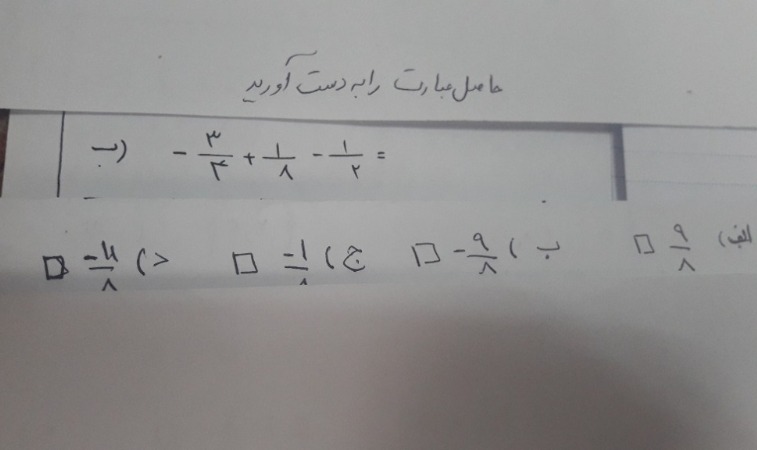 حاصل عبارت را به دست آورید
ب) -۳/۴ + ۱/۸ - ۱/۲ =
الف) ۹/۸ □ ب) -۹/۸ □ ج) -۱/۸ □ د) -۱۱/۸ □